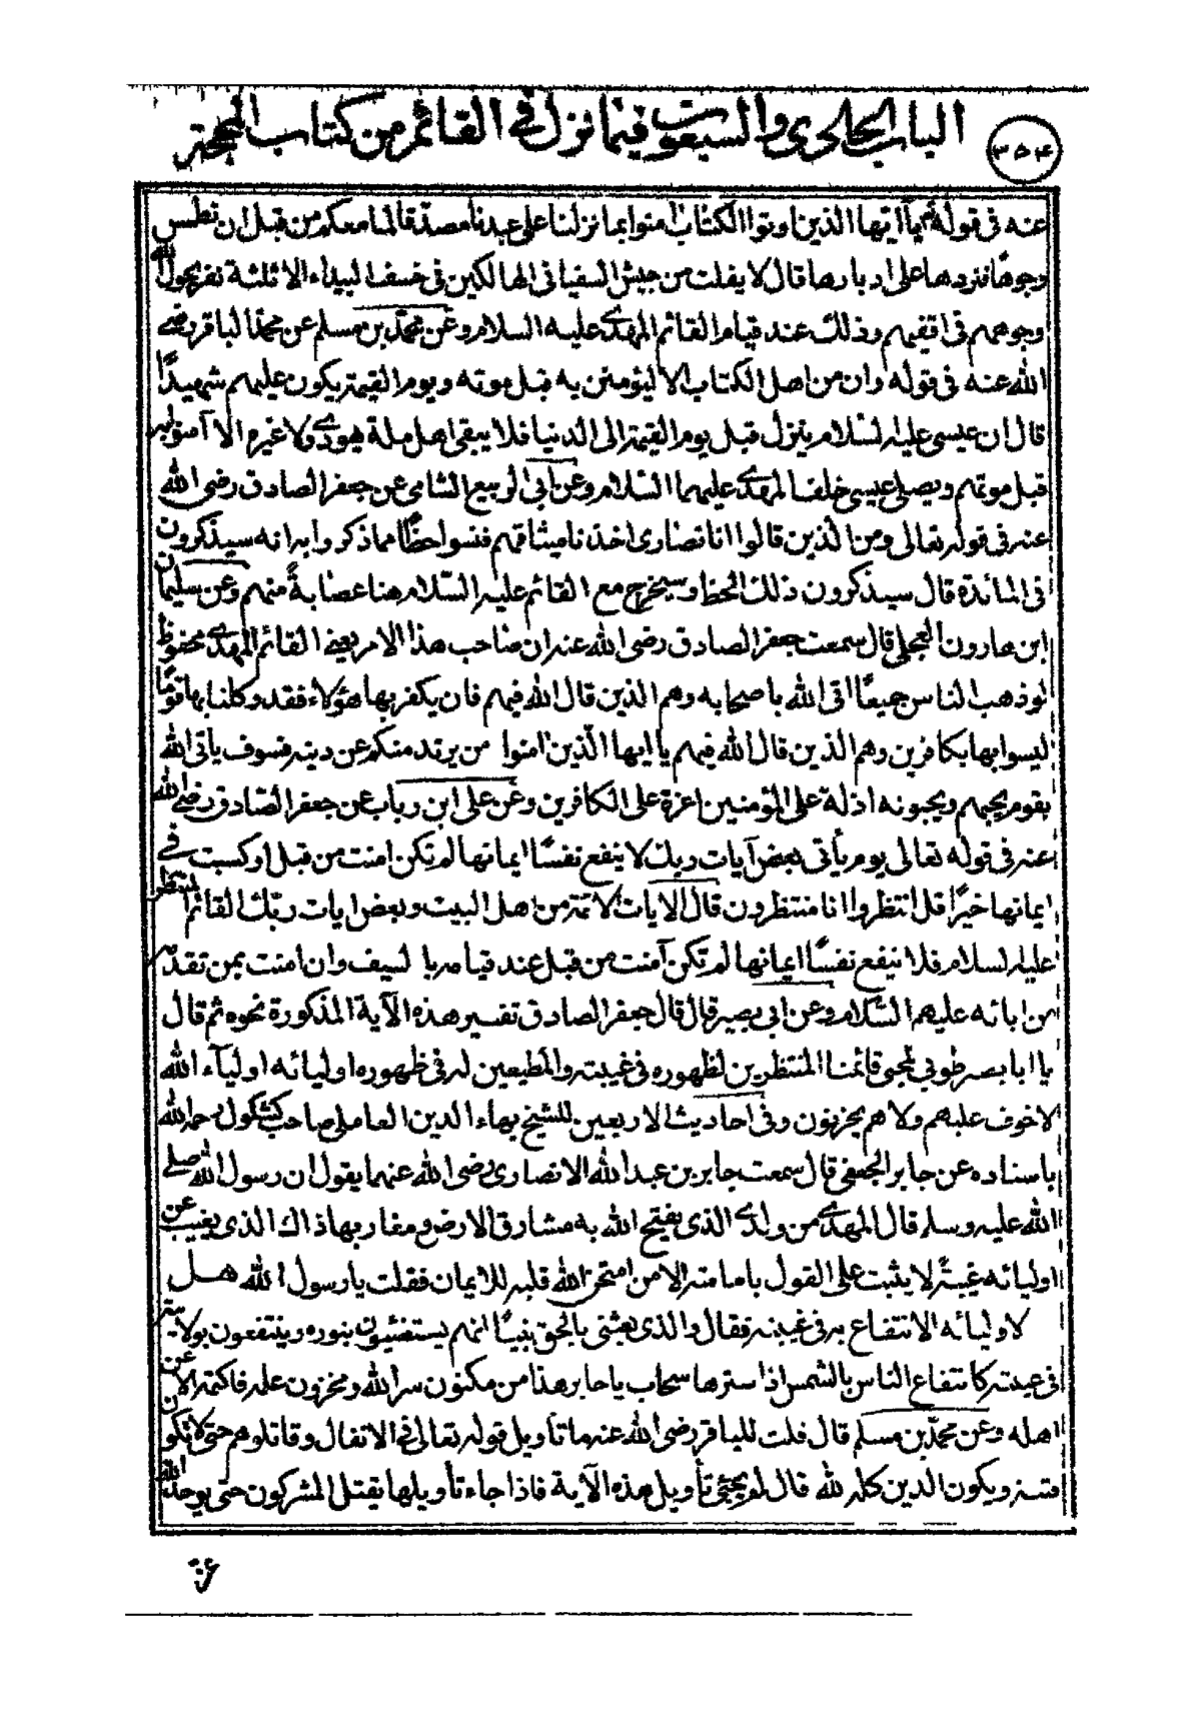 الباب الحادى والسبعون فيما نزل فى القائم من كتاب المحجة
٣٥٤
عنه فى قوله يآ ايها الذين اوتوا الكتاب امنوا بما نزلنا على عبدنا مصدّقا لما معكم من قبل ان نطمس
وجوهًا فنردها على ادبارها قال لا يفلت من جيش السفيانى الهالكين فى خسف البيداء الا ثلثة نفر يحول الله
وجوههم فى اقفيهم وذلك عند قيام القائم المهدى عليه السلام وعن محمّد بن مسلم عن محمّد الباقر رضى
الله عنه فى قوله وان من اهل الكتاب الا ليؤمنن به قبل موته ويوم القيمة يكون عليهم شهيدًا
قال ان عيسى عليه السلام ينزل قبل يوم القيمة الى الدنيا فلا يبقى اهل ملة يهودى ولا غيرهم الا آمنوا به
قبل موتهم ويصلى عيسى خلف المهدى عليهما السّلام وعن ابى الربيع الشامى عن جعفر الصادق رضى الله
عنه فى قوله تعالى ومن الذين قالوا انا نصارى اخذنا ميثاقهم فنسوا حظًا مما ذكروا به انه سيذكرون
فى المائدة قال سيذكرون ذلك الحظ وسيخرج مع القائم عليه السّلام هنا عصابةً منهم وعن سليمان
ابن هارون العجلى قال سمعت جعفر الصادق رضى الله عنه ان صاحب هذا الامر يعنى القائم المهدى محفوظ
لو ذهب الناس جميعًا اتى الله باصحابه وهم الذين قال الله فيهم فان يكفر بها هؤلاء فقد وكلنا بها قومًا
ليسوا بها بكافرين وهم الذين قال الله فيهم يا ايها الّذين امنوا من يرتد منكم عن دينه فسوف ياتى الله
بقوم يحبهم ويحبونه اذلة على المؤمنين اعزة على الكافرين وعن على ابن رباب عن جعفر الصّادق رضى الله
عنه فى قوله تعالى يوم يأتى بعض آيات ربك لا ينفع نفسًا ايمانها لم تكن امنت من قبل او كسبت فى
ايمانها خيرًا قل انتظروا انا منتظرون قال الايات الائمة من اهل البيت وبعض ايات ربّك القائم المنتظر
عليه السلام فلا ينفع نفسًا ايمانها لم تكن آمنت من قبل عند قيامه بالسيف وان امنت بمن تقدمه
من ابائه عليهم السّلام وعن ابى بصير قال قال جعفر الصادق تفسير هذه الآية المذكورة نحوه ثم قال
يا ابا بصير طوبى لمحبى قائمنا المنتظرين لظهوره فى غيبته والمطيعين له فى ظهوره اوليائه اوليآء الله
لا خوف عليهم ولا هم يحزنون وفى احاديث الاربعين للشيخ بهاء الدين العاملى صاحب كشكول رحمه الله
باسناده عن جابر الجعفى قال سمعت جابر بن عبد الله الانصارى رضى الله عنهما يقول ان رسول الله صلى
الله عليه وسلم قال المهدى من ولدى الذى يفتح الله به مشارق الارض ومغاربها ذاك الذى يغيب عن
اوليائه غيبةً لا يثبت على القول بامامته الا من امتحن الله قلبه للايمان فقلت يا رسول الله هل
لاوليائه الانتفاع به فى غيبته فقال والذى بعثنى بالحق نبيًا انهم يستضيئون بنوره وينتفعون بولايته
فى غيبته كانتفاع الناس بالشمس اذا سترها سحاب يا جابر هذا من مكنون سر الله ومخزون علمه فاكتمه الا عن
اهله وعن محمّد بن مسلم قال قلت للباقر رضى الله عنه ما تأويل قوله تعالى فى الانفال وقاتلوهم حتى لا تكون
فتنة ويكون الدين كله لله قال لم يجئ تأويل هذه الآية فاذا جاء تأويلها يقتل المشركون حتى يوحد الله